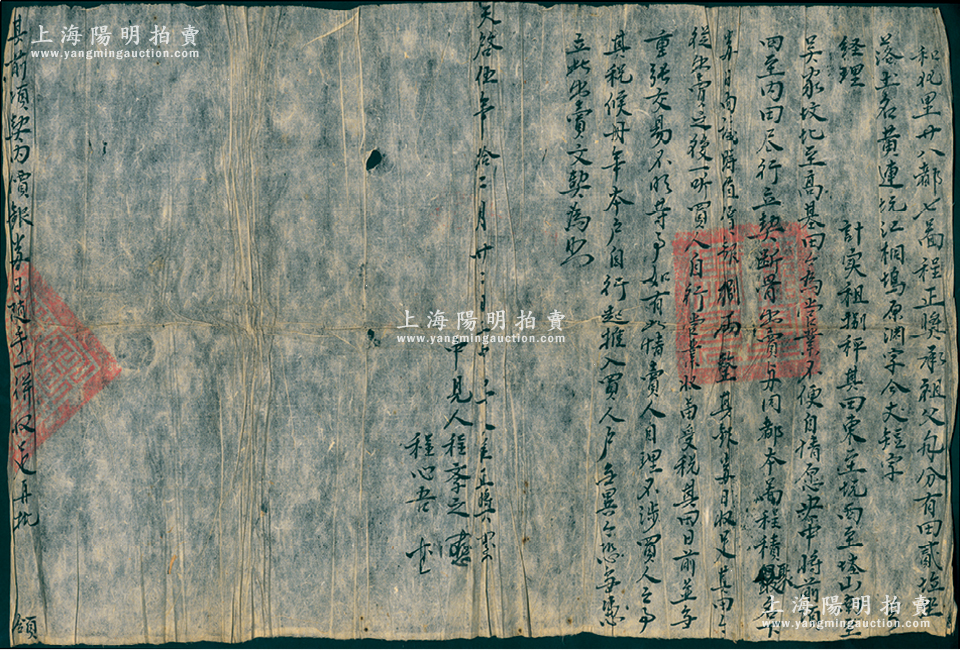 和化里廿八都七啚程正獎承祖父分有田貳坵坐
落土名黄連坑江桐塢原潤字今丈短字
经理 計实租捌秤其田東至坑西至塝山
吴家坟北至高基田今為當業不便自情愿央中將前項
四至内田尽行立契断骨出賣与同都本啚程積名下
當日面議時值價銀捌兩整其銀當日收足其田今
從出賣之後一听買人自行當業收苗受税其田日前並与
重張交易不明等事如有此情賣人自理不涉買人之事
其税候册年本户自行起推入買人户無異今恐無憑
立此出賣文契為照
天啓伍年拾二月廿二日立
中見人程孝之
程心吾
其前項契内價銀當日随手一併收足再批 領
上海陽明拍賣
www.yangmingauction.com
上海陽明拍賣
www.yangmingauction.com
上海陽明拍賣
www.yangmingauction.com
上海陽明拍賣
www.yangmingauction.com